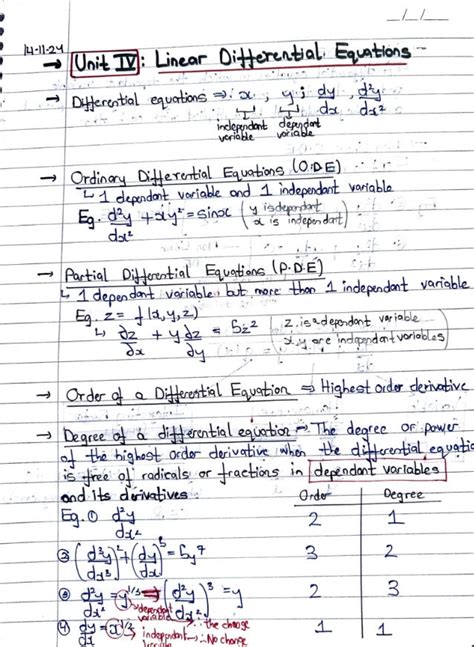 _/_/_
14-11-24
→ Unit IV : Linear Differential Equations
→ Differential equations ⇒ x, y ; dy/dx, d²y/dx²
independant variable dependant variable
→ Ordinary Differential Equations (O.D.E)
↳ 1 dependant variable and 1 independant variable
Eg. d²y/dx² + xy² = sinx ( y is dependant
x is independant )
→ Partial Differential Equations (P.D.E)
↳ 1 dependant variable but more than 1 independant variable
Eg. z = f(x,y,z)
↳ ∂z/∂x + y ∂z/∂y = 5z² ( z is a dependant variable
x,y are independant variables )
→ Order of a Differential Equation ⇒ Highest order derivative
→ Degree of a differential equation ⇒ The degree or power
of the highest order derivative when the differential equatio
is free of radicals or fractions in dependant variables
and its derivatives
Order Degree
Eg. ① d²y/dx² 2 1
② (d³y/dx³)² + (dy/dx)⁵ = 5y⁷ 3 2
③ d²y/dx² = y^1/3 ⇒ (d²y/dx²)³ = y 2 3
dependant variable ∴ the change
④ dy/dx = x^1/2 1 1
independant variable → ∴ No change